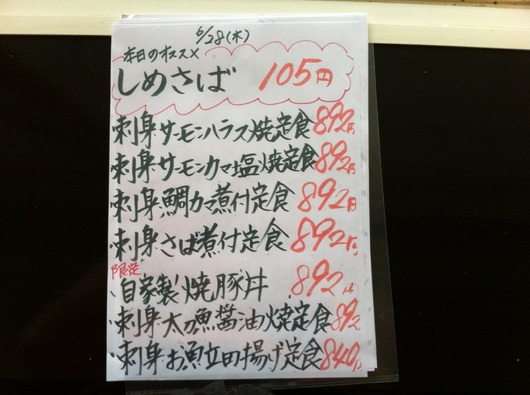 6/28(木)
本日のオススメ
しめさば 105円
刺身サーモンハラス焼定食 892円
刺身サーモンカマ塩焼定食 892円
刺身鯛カマ煮付定食 892円
刺身さば煮付定食 892円
限定
自家製焼豚丼 892円
刺身太刀魚醤油焼定食 892
刺身お魚立田揚げ定食 840円